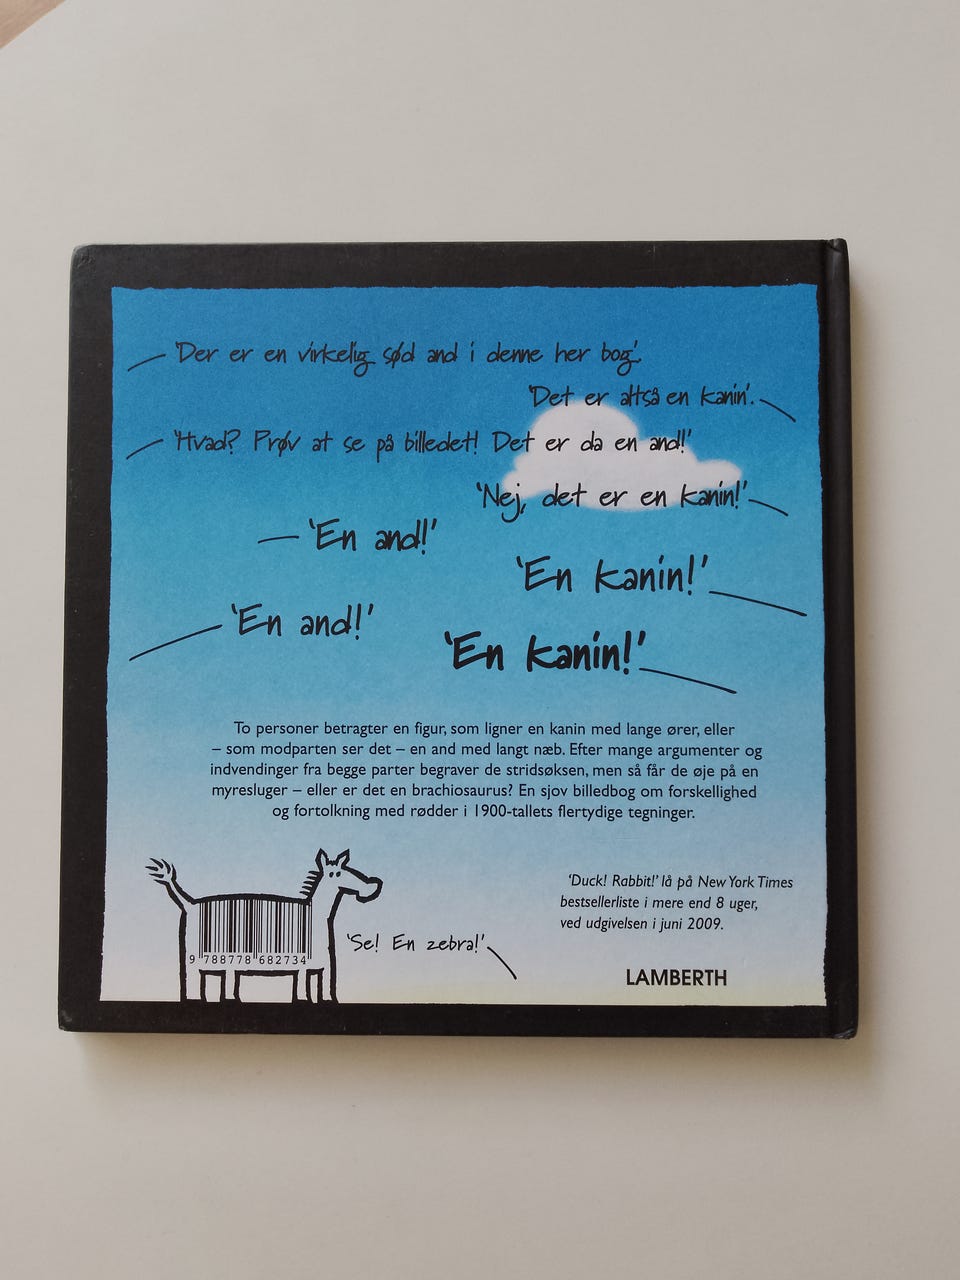 'Der er en virkelig sød and i denne her bog'.
'Det er altså en kanin'.
'Hvad? Prøv at se på billedet! Det er da en and!'
'Nej, det er en kanin!'
'En and!'
'En kanin!'
'En and!'
'En kanin!'
To personer betragter en figur, som ligner en kanin med lange ører, eller
– som modparten ser det – en and med langt næb. Efter mange argumenter og
indvendinger fra begge parter begraver de stridsøksen, men så får de øje på en
myresluger – eller er det en brachiosaurus? En sjov billedbog om forskellighed
og fortolkning med rødder i 1900-tallets flertydige tegninger.
'Duck! Rabbit!' lå på New York Times
bestsellerliste i mere end 8 uger,
ved udgivelsen i juni 2009.
'Se! En zebra!'
9 788778 682734
LAMBERTH